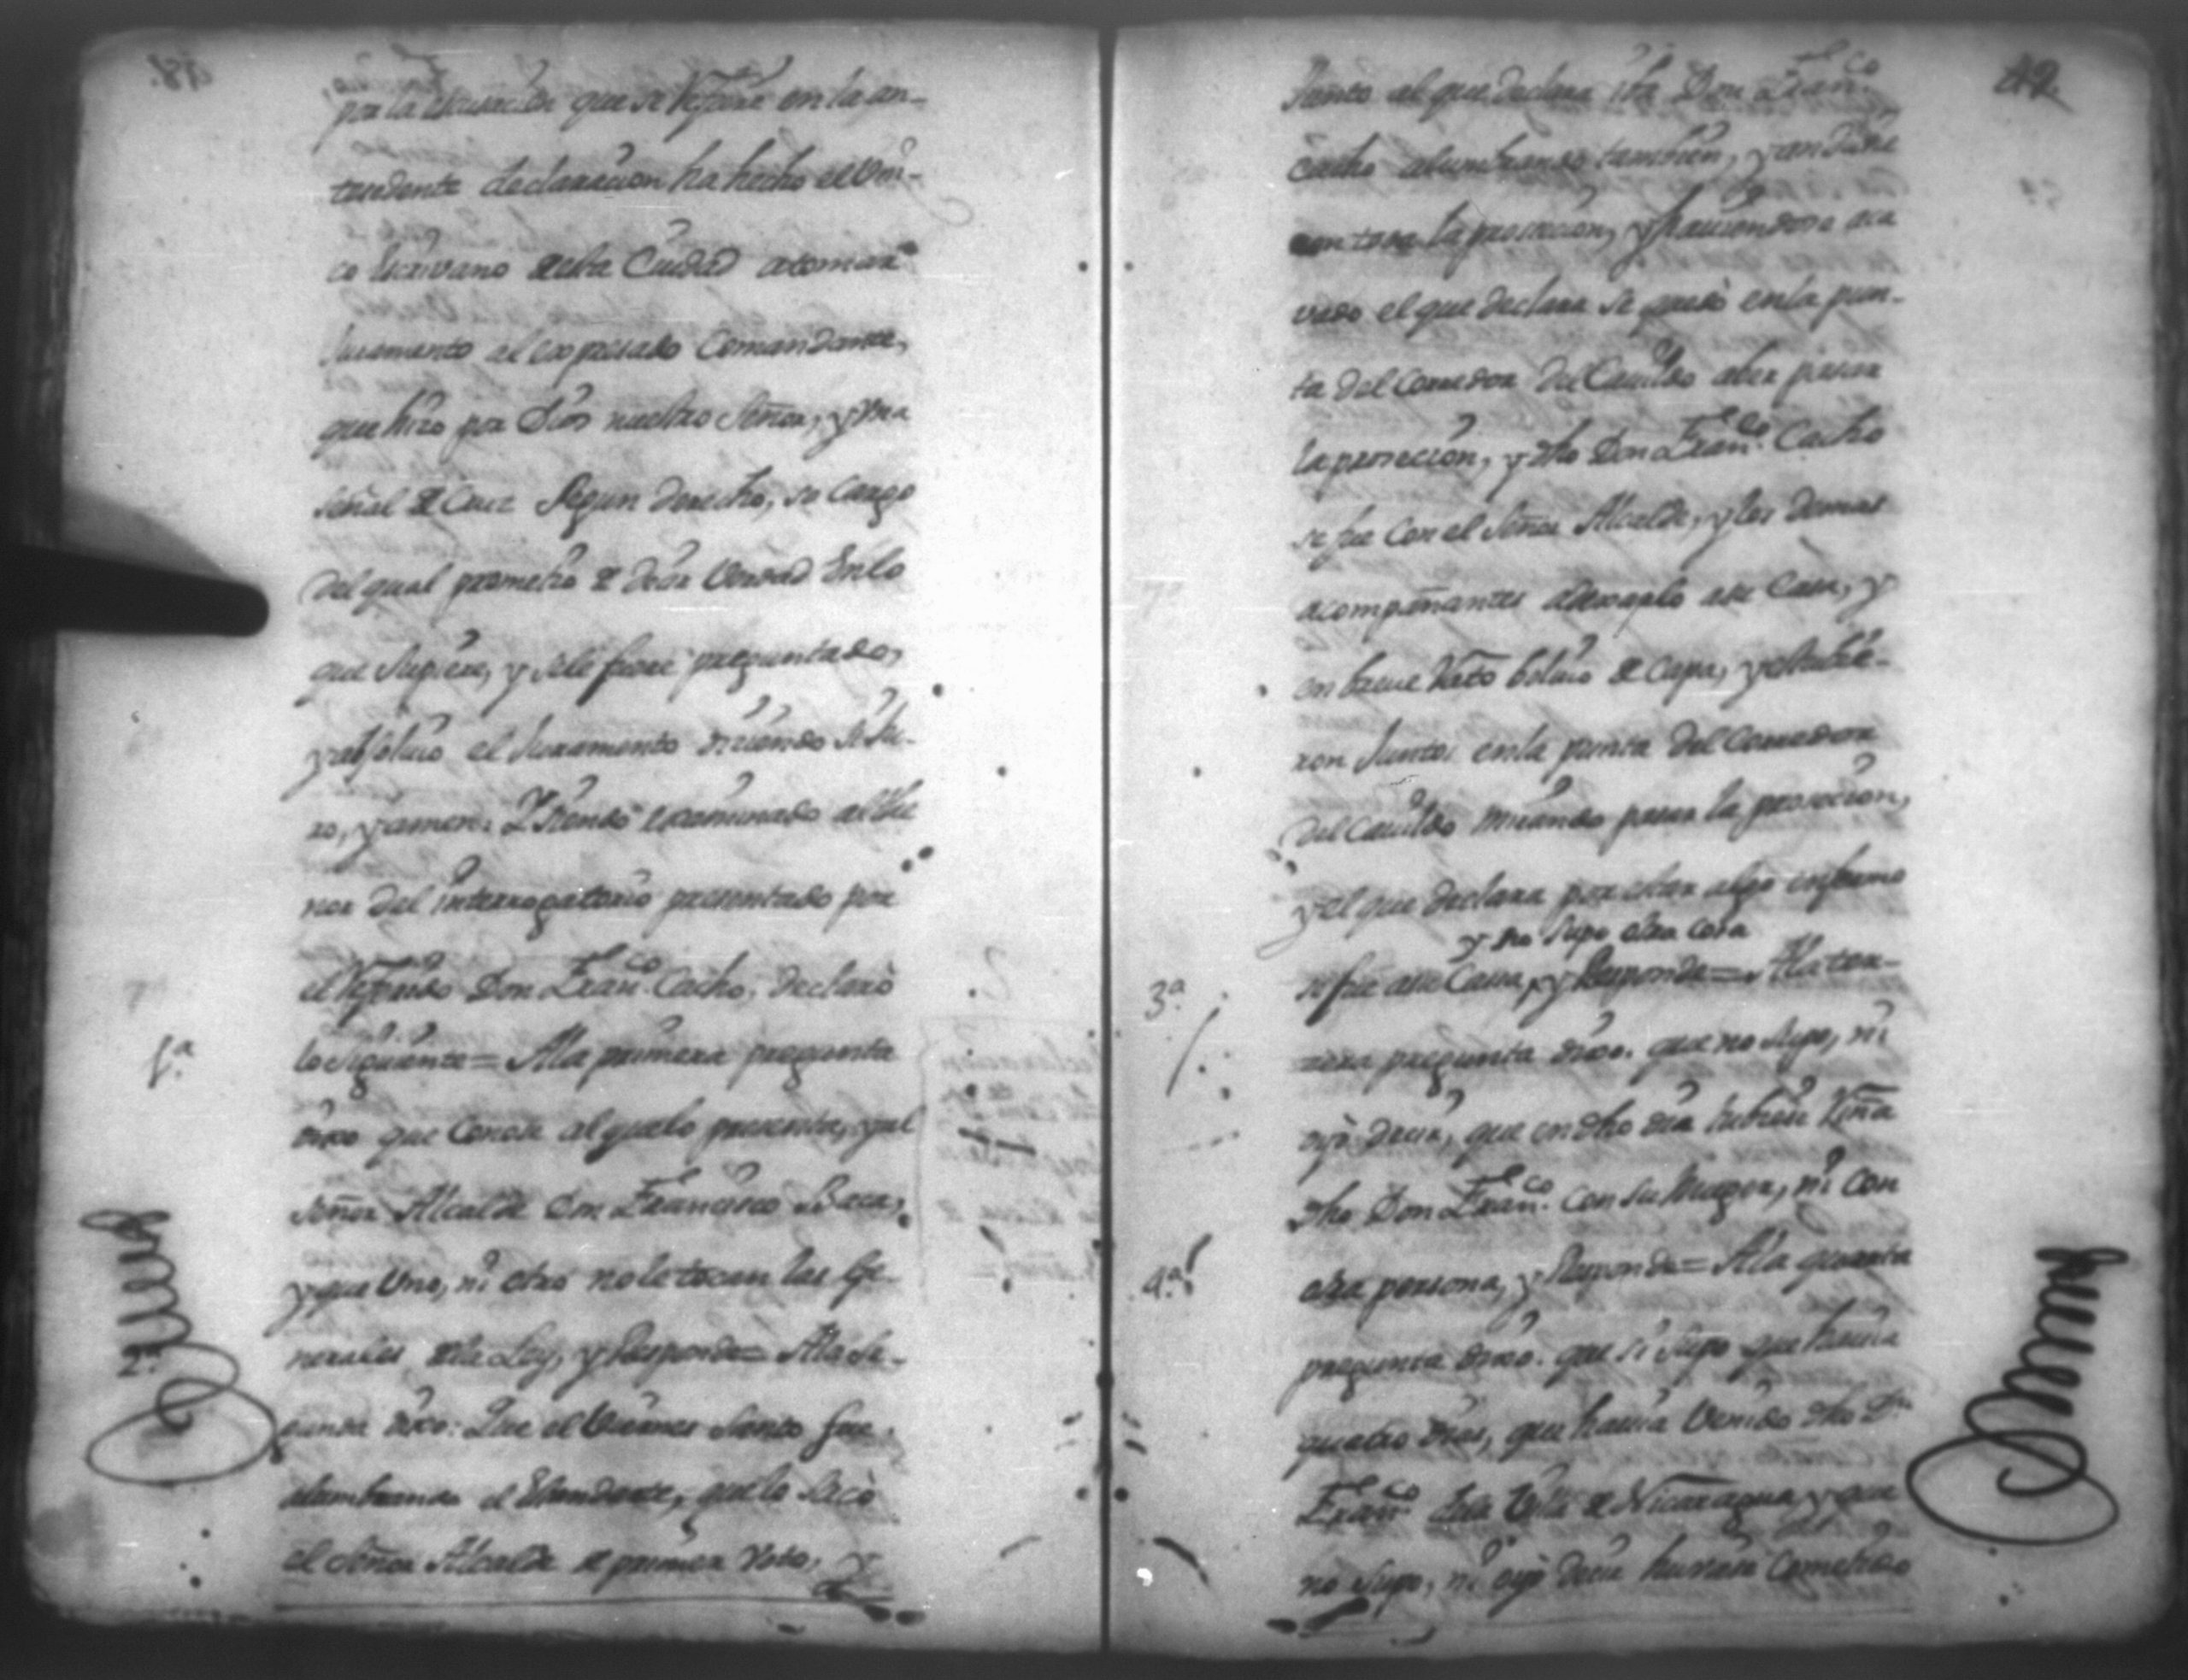 por la ... que se refiere en la an-
tesedente declaracion ha hecho el Uni-
co Escrivano de esta Ciudad a tomar
Juramento al expresado Comandante,
que hizo por Dios nuestro Señor, y una
señal de Cruz Segun derecho, so cargo
del qual prometio de desir Verdad en lo
que supiere, y se le fuere preguntado,
y absoluio el Juramento diciendo si Ju-
ro, y amen. Y siendo examinado al the
nor del interrogatorio presentado por
el referido Don Fran.co Cacho, declaró
lo siguiente = A la primera pregunta
1.a
dixo que Conose al que lo presenta, y al
Señor Alcalde Don Francisco Baca,
y que Uno, ni otro no le tocan las Ge-
nerales de la Ley, y Responde = A la Se-
2.a
gunda dixo: Que el Viernes Santo fue
alumbrando el Estandarte, que lo sacò
el Señor Alcalde de primer Voto, y
42.
Junto al que declara iba Don Fran.co
Cacho alumbrando también, y anduvie
ron toda la prosecion, y haviendose aca
vado el que declara se quedò en la pun-
ta del Corredor del Cavildo a ber pasar
la prosecion, y dho Don Fran.co Cacho
se fue con el Señor Alcalde, y los demas
acompañantes a dexarlo a su Casa, y
en breve rato bolvio de Capa, y estubie-
ron Juntos en la punta del Corredor
del Cavildo mirando pasar la prosecion,
y el que declara por estar algo enfermo
y no supo otra cosa
se fue a su Casa, y Responde = A la ter-
3.a
zera pregunta dixo. que no supo, ni
oyò decir, que en dho dia hubiese riña
dho Don Fran.co con su Muger, ni con
otra persona, y Responde = A la quarta
4.a
pregunta dixo. que si supo que havia
quatro dias, que havia Venido dho Dn
Fran.co de la Villa de Nicaragua, y que
no supo, ni oyò decir huviese cometido